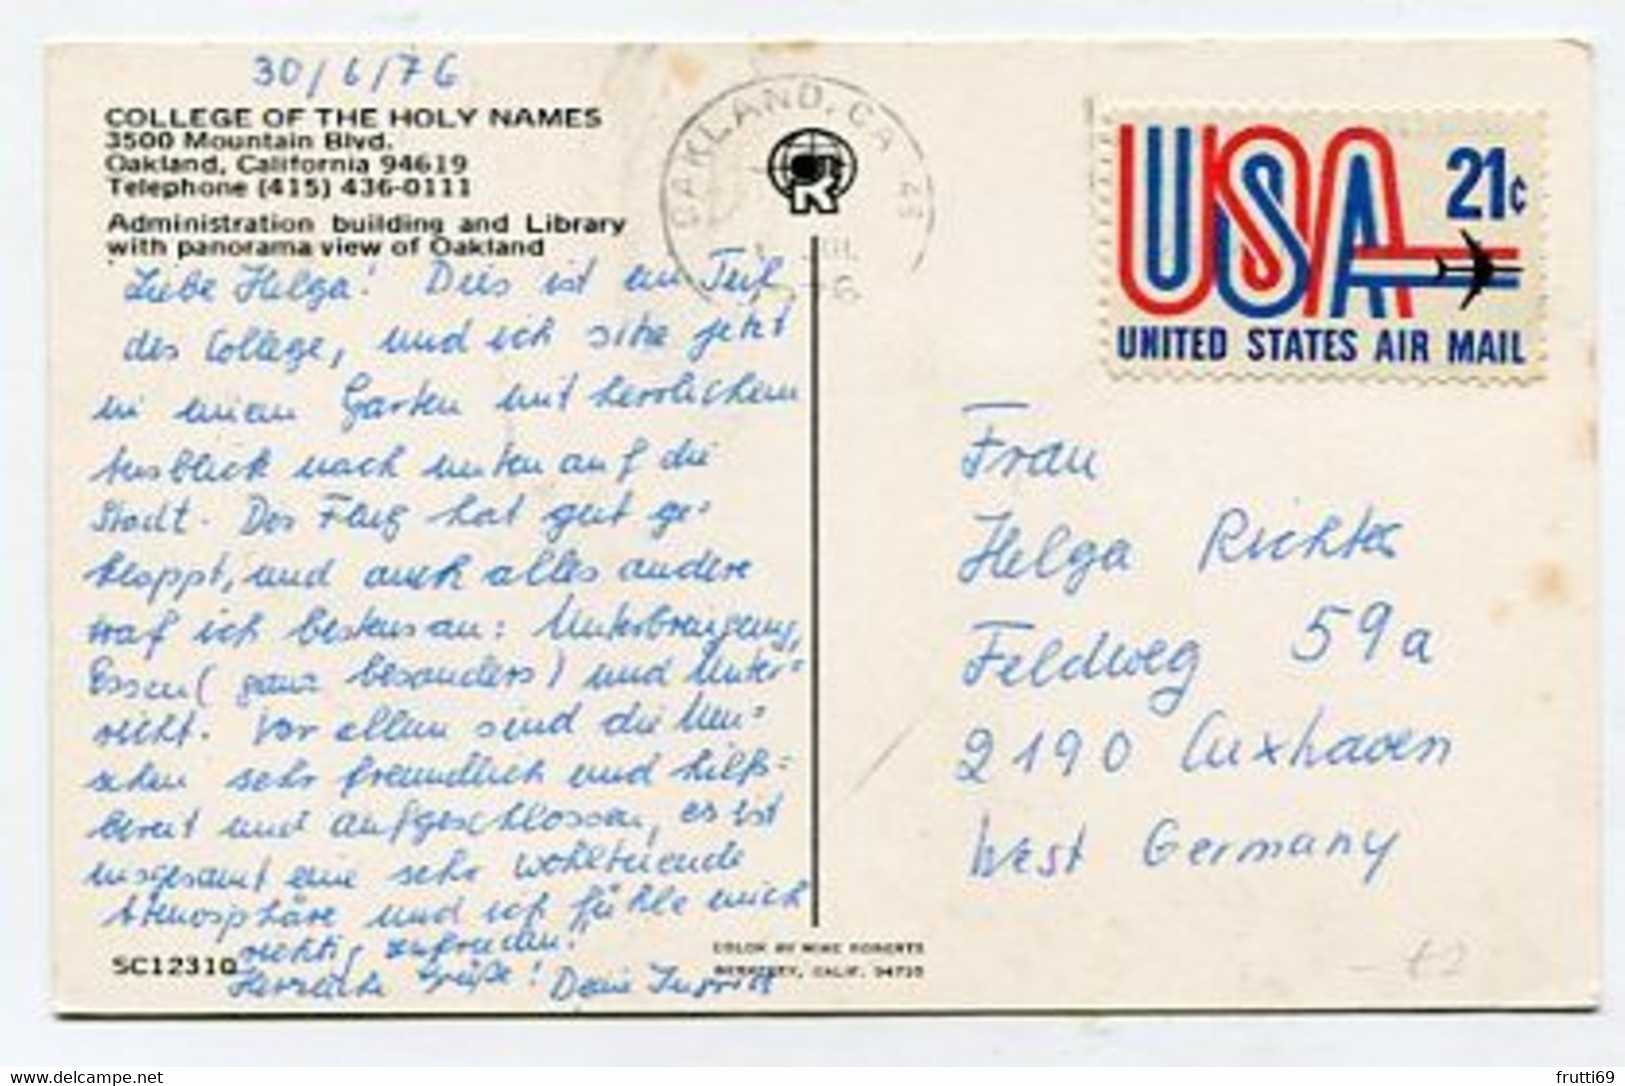 30/6/76
COLLEGE OF THE HOLY NAMES
3500 Mountain Blvd.
Oakland, California 94619
Telephone (415) 436-0111
Administration building and Library
with panorama view of Oakland
Liebe Helga! Dies ist ein Teil
des College, und ich sitze jetzt
in einem Garten mit herrlichem
Ausblick nach unten auf die
Stadt. Der Flug hat gut ge-
klappt, und auch alles andere
traf ich bestens an: Unterbringung,
Essen (ganz besonders) und Unter-
richt. Vor allem sind die Men-
schen sehr freundlich und hilfs-
bereit und aufgeschlossen, es ist
insgesamt eine sehr wohltuende
Atmosphäre und ich fühle mich
richtig zufrieden.
Herzliche Grüße! Deine
SC12310
COLOR BY MIKE ROBERTS
BERKELEY, CALIF. 94710
OAKLAND, CA
USA 21c
UNITED STATES AIR MAIL
Frau
Helga Richter
Feldweg 59a
2190 Cuxhaven
West Germany
frutti69